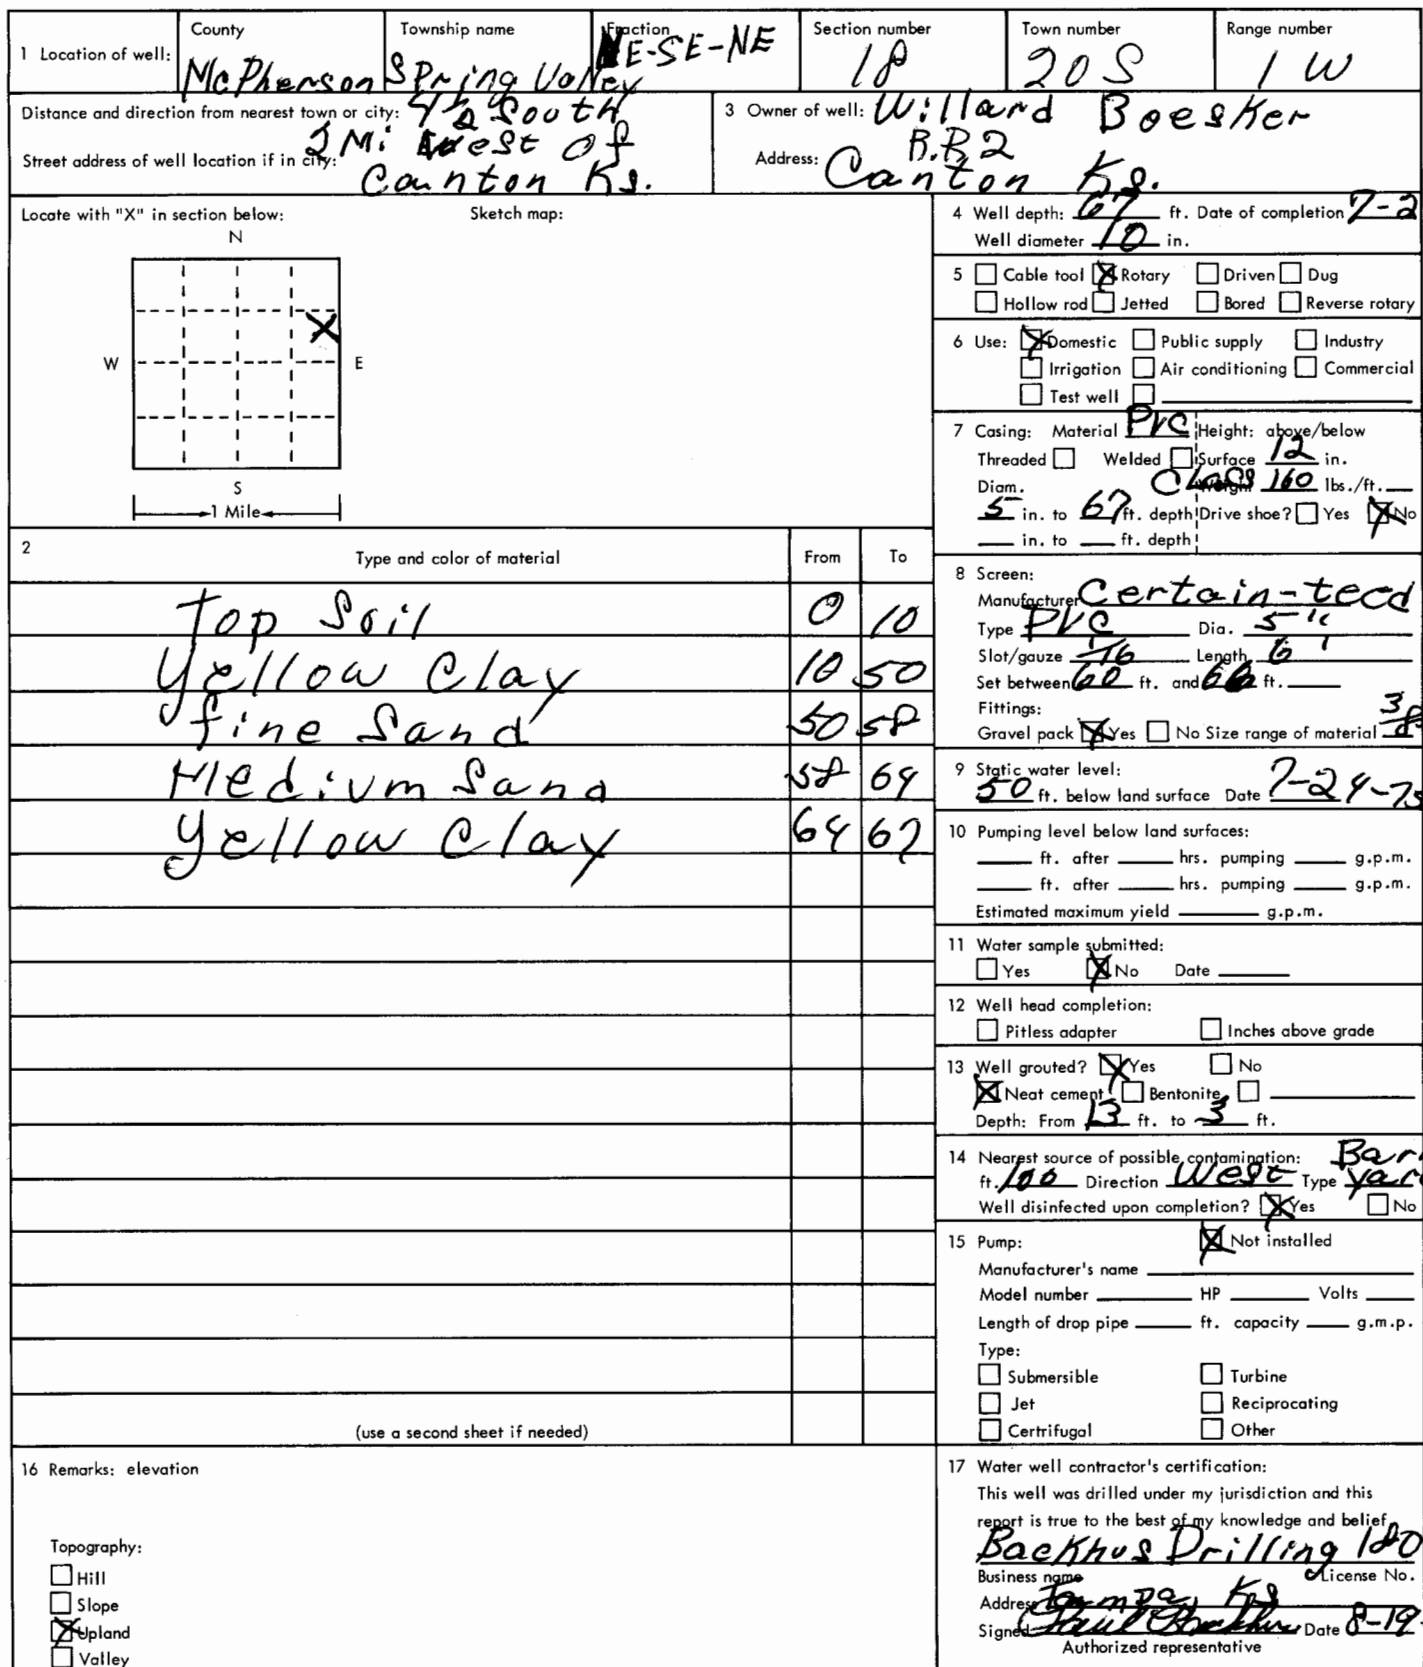 1 Location of well:
County
McPherson
Township name
Spring Valley
Fraction
NE-SE-NE
Section number
18
Town number
20S
Range number
1 W
Distance and direction from nearest town or city: 4½ South
2 Mi West of
Street address of well location if in city:
Canton Ks.
3 Owner of well: Willard Boesker
R.R2
Address: Canton Ks.
Locate with "X" in section below: Sketch map:
N
X
W E
S
1 Mile
2 Type and color of material From To
Top Soil 0 10
Yellow Clay 10 50
fine Sand 50 58
Medium Sand 58 64
Yellow Clay 64 67
(use a second sheet if needed)
4 Well depth: 67 ft. Date of completion 7-2
Well diameter 10 in.
5 Cable tool X Rotary Driven Dug
Hollow rod Jetted Bored Reverse rotary
6 Use: X Domestic Public supply Industry
Irrigation Air conditioning Commercial
Test well
7 Casing: Material PVC Height: above/below
Threaded Welded Surface 12 in.
Diam. Class Weight 160 lbs./ft.
5 in. to 67 ft. depth Drive shoe? Yes X No
in. to ft. depth
8 Screen:
Manufacturer Certain-teed
Type PVC Dia. 5"
Slot/gauze 1/16 Length 6'
Set between 60 ft. and 66 ft.
Fittings:
Gravel pack X Yes No Size range of material 3/8
9 Static water level:
50 ft. below land surface Date 7-24-75
10 Pumping level below land surfaces:
ft. after hrs. pumping g.p.m.
ft. after hrs. pumping g.p.m.
Estimated maximum yield g.p.m.
11 Water sample submitted:
Yes X No Date
12 Well head completion:
Pitless adapter Inches above grade
13 Well grouted? X Yes No
X Neat cement Bentonite
Depth: From 13 ft. to 3 ft.
14 Nearest source of possible contamination: Bar
ft. 100 Direction West Type Yar
Well disinfected upon completion? X Yes No
15 Pump: X Not installed
Manufacturer's name
Model number HP Volts
Length of drop pipe ft. capacity g.m.p.
Type:
Submersible Turbine
Jet Reciprocating
Certrifugal Other
16 Remarks: elevation
Topography:
Hill
Slope
X Upland
Valley
17 Water well contractor's certification:
This well was drilled under my jurisdiction and this
report is true to the best of my knowledge and belief
Backhus Drilling 180
Business name License No.
Address Tampa, Ks
Signed Paul Backhus Date 8-19-
Authorized representative